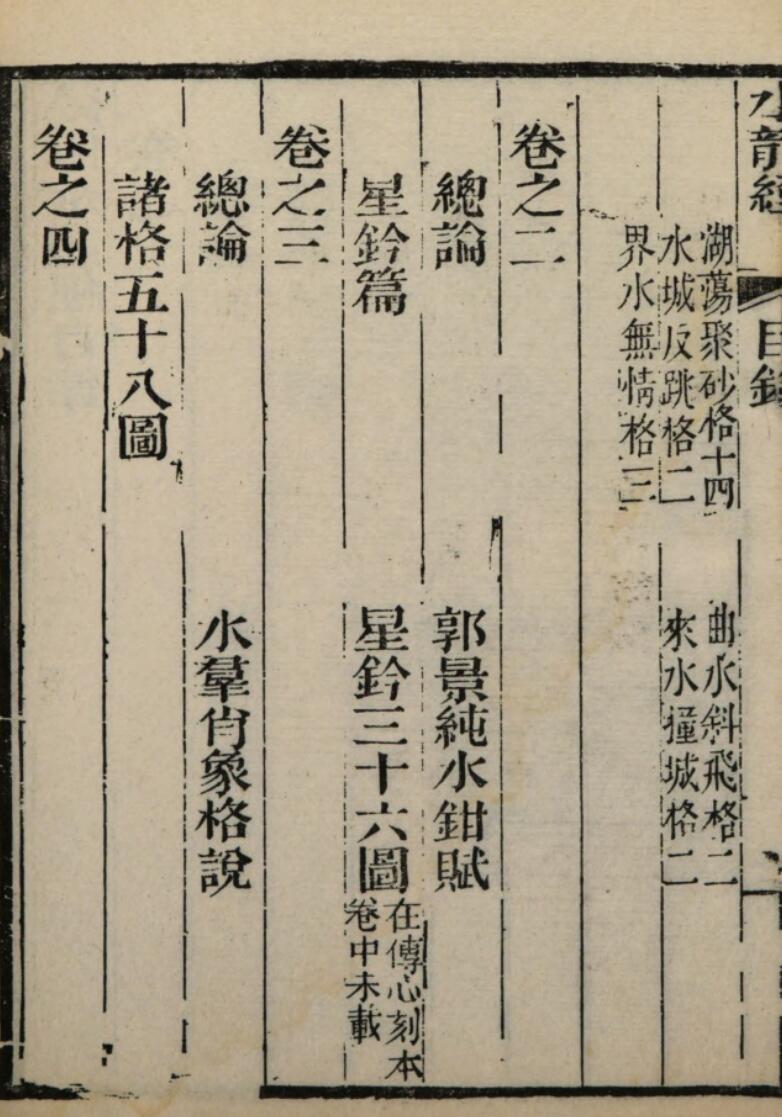 水龍經 目錄
湖蕩聚砂格十四 曲水斜飛格二
水城反跳格二 來水撞城格二
界水無情格三
卷之二
總論 郭景純水鉗賦
星鈐篇 星鈐三十六圖 在傳心刻本
卷中未載
卷之三
總論 水羣肖象格說
諸格五十八圖
卷之四